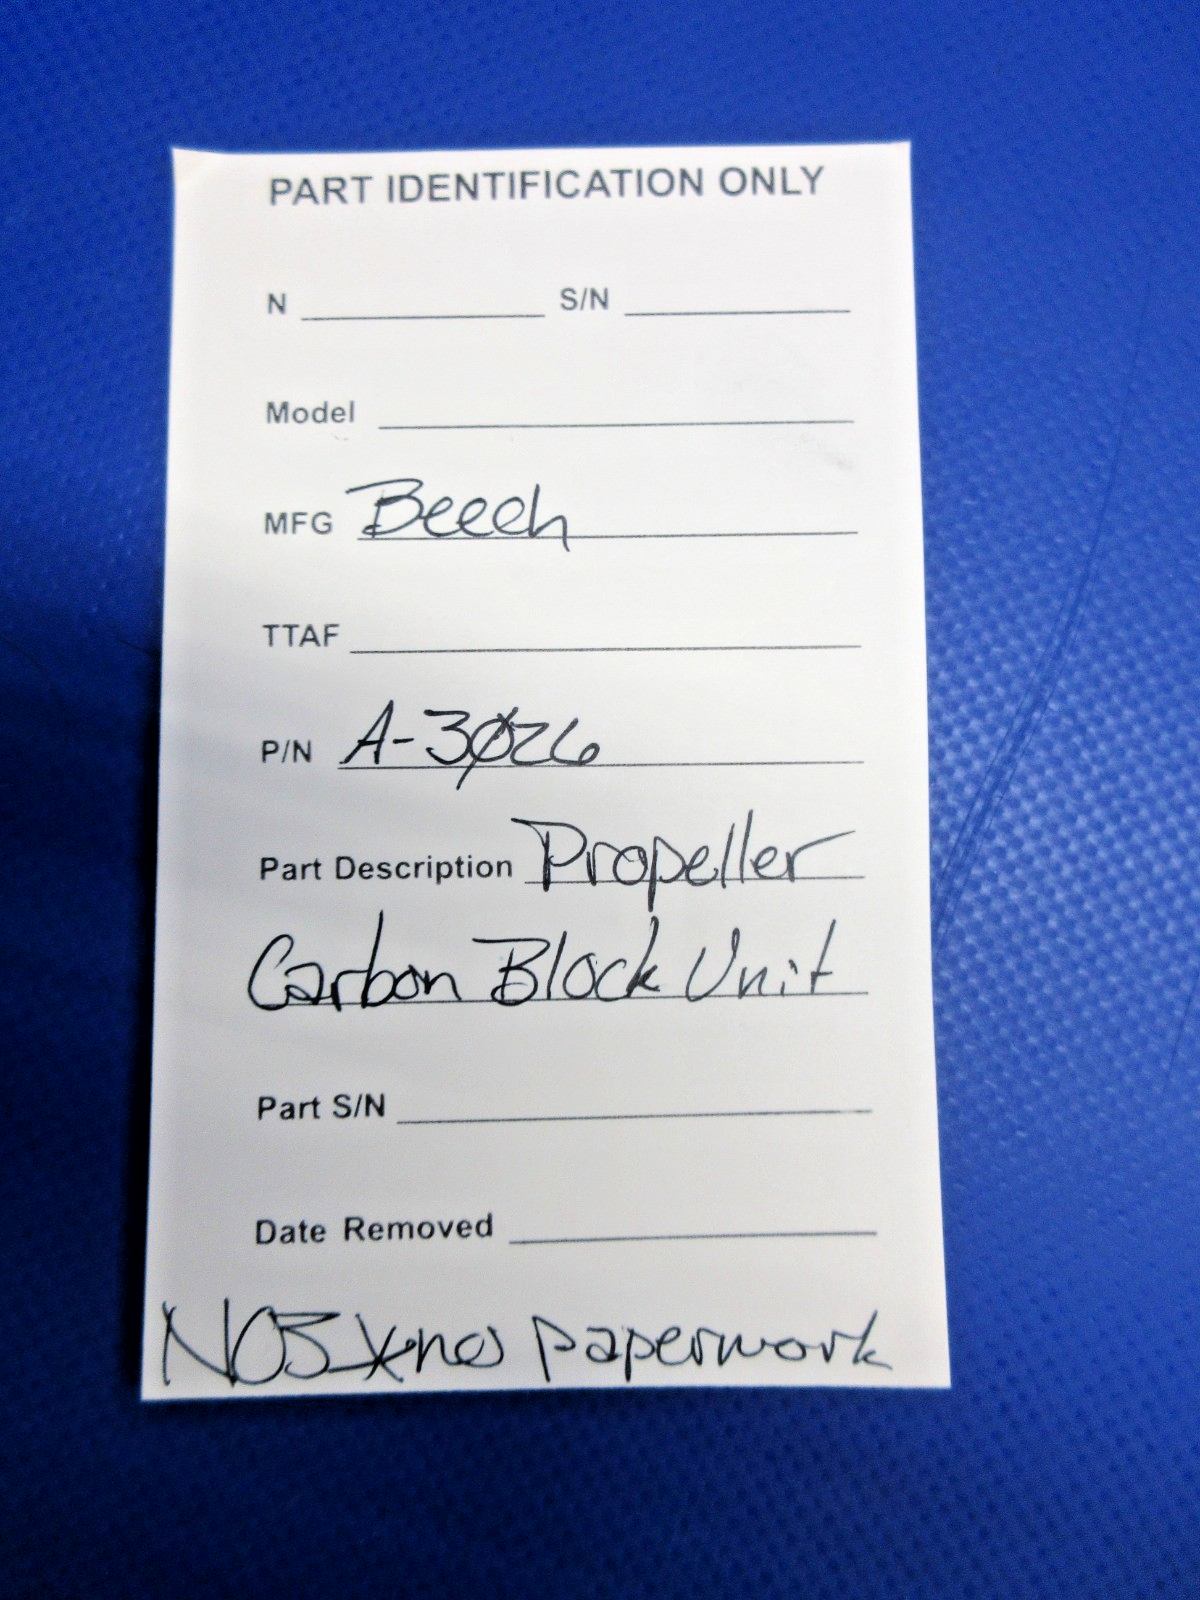 PART IDENTIFICATION ONLY
N S/N
Model
MFG Beech
TTAF
P/N A-3026
Part Description Propeller
Carbon Block Unit
Part S/N
Date Removed
NOS no paperwork